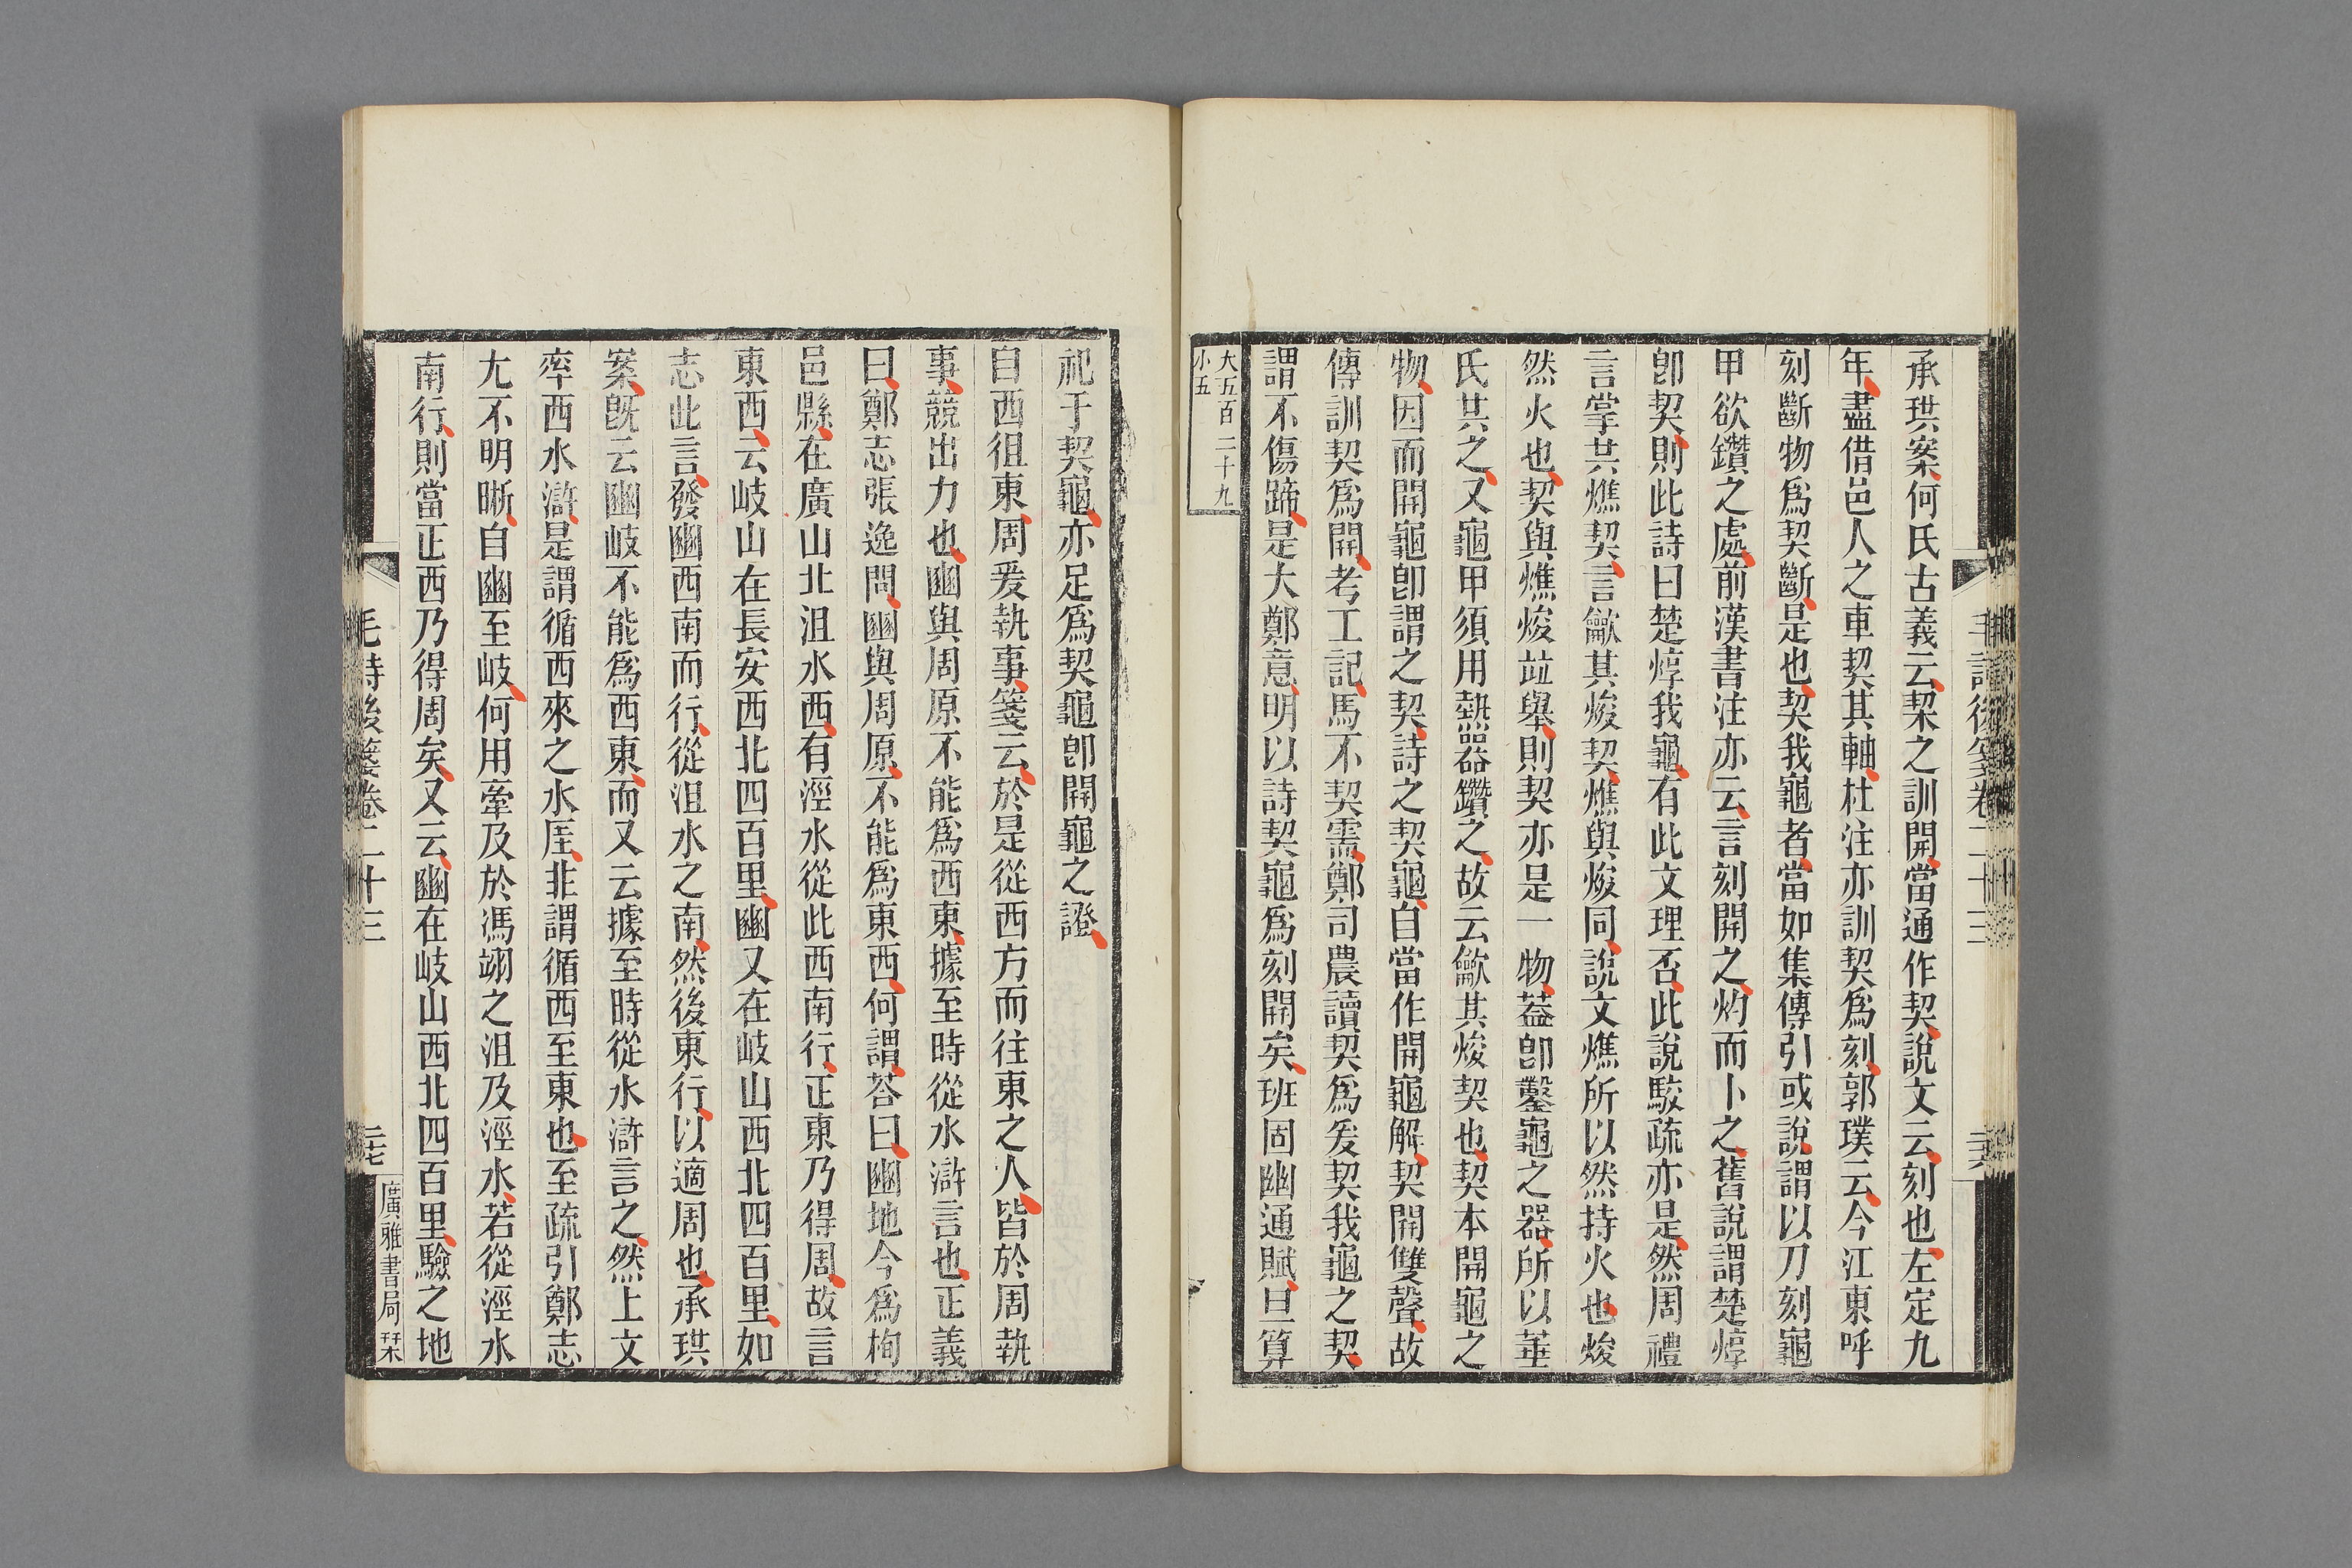 承珙案何氏古義云栔之訓開當通作契說文云刻也左定九
年盡借邑人之車契其軸杜注亦訓契爲刻郭璞云今江東呼
刻斷物爲契斷是也契我龜者當如集傳引或說謂以刀刻龜
甲欲鑽之處前漢書注亦云言刻開之灼而卜之舊說謂楚焞
卽契則此詩曰楚焞我龜有此文理否此說駮疏亦是然周禮
言掌共燋契言龡其焌契燋與焌同說文燋所以然持火也焌
然火也契與燋焌竝舉則契亦是一物葢卽鑿龜之器所以菙
氏共之又龜甲須用熱器鑽之故云龡其焌契也契本開龜之
物因而開龜卽謂之契詩之契龜自當作開龜解契開雙聲故
傳訓契爲開考工記馬不契需鄭司農讀契爲爰契我龜之契
謂不傷蹄是大鄭意明以詩契龜爲刻開矣班固幽通賦旦算
大五百二十九
小五
毛詩後箋卷二十三
二六
祀于契龜亦足爲契龜卽開龜之證
自西徂東周爰執事箋云於是從西方而往東之人皆於周執
事競出力也豳與周原不能爲西東據至時從水滸言也正義
曰鄭志張逸問豳與周原不能爲東西何謂荅曰豳地今爲栒
邑縣在廣山北沮水西有涇水從此西南行正東乃得周故言
東西云岐山在長安西北四百里豳又在岐山西北四百里如
志此言發豳西南而行從沮水之南然後東行以適周也承珙
案旣云豳岐不能爲西東而又云據至時從水滸言之然上文
率西水滸是謂循西來之水厓非謂循西至東也至疏引鄭志
尤不明晰自豳至岐何用牽及於馮翊之沮及涇水若從涇水
南行則當正西乃得周矣又云豳在岐山西北四百里驗之地
毛詩後箋卷二十三
二七
廣雅書局栞